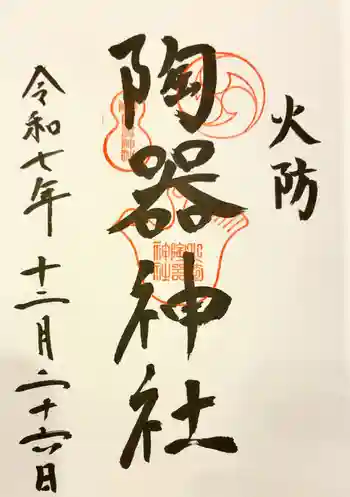 火防
陶器神社
令和七年 十二月二十六日
火防
陶器
神社